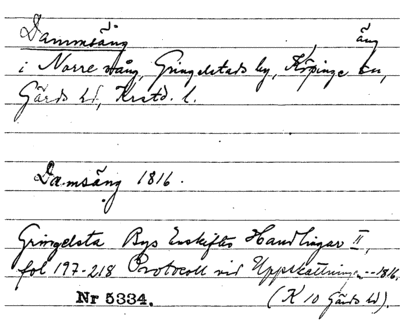 Dammsäng äng
i Norre vång, Gringelstads by, Köpinge sn,
Gärds hd, Krstd. l.
Damsäng 1816.
Gringelsta Bys Enskiftes Handlingar II,
fol 197-218 Protocoll vid Uppskattningen--1816.
Nr 5334. (K 10 Gärds hd).